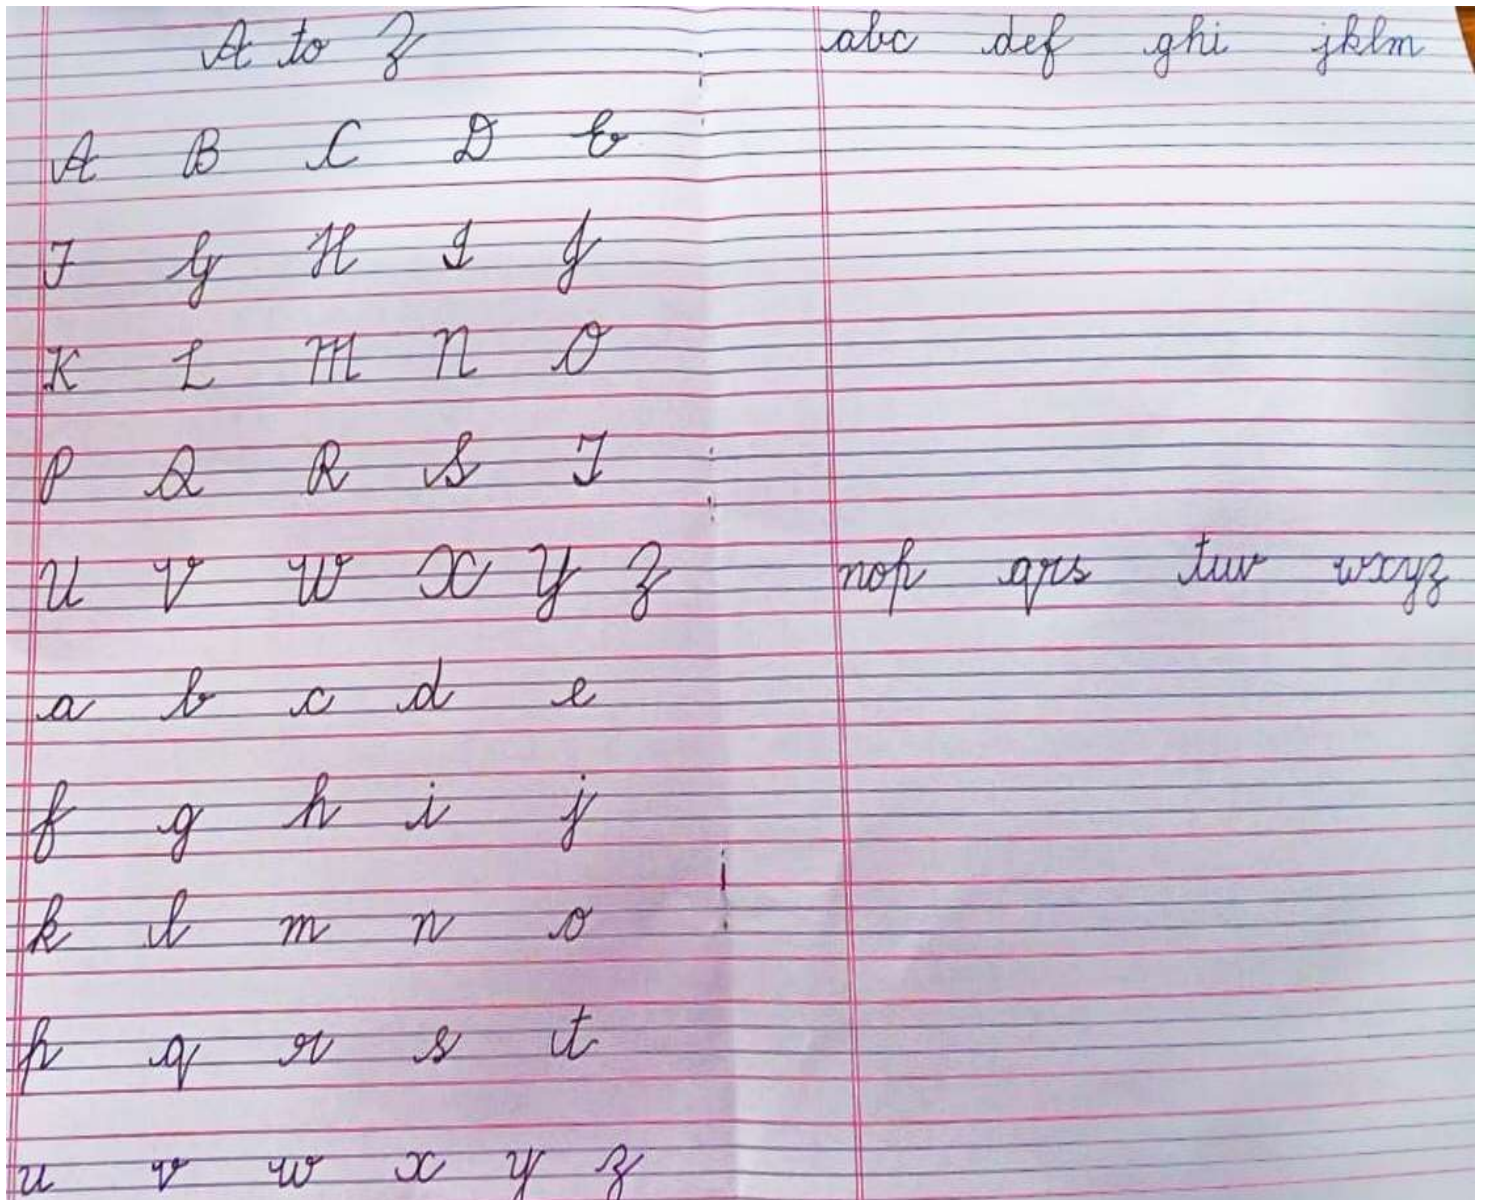 A to Z
A B C D E
F G H I J
K L M N O
P Q R S T
U V W X Y Z
a b c d e
f g h i j
k l m n o
p q r s t
u v w x y z
abc def ghi jklm
nop qrs tuv wxyz